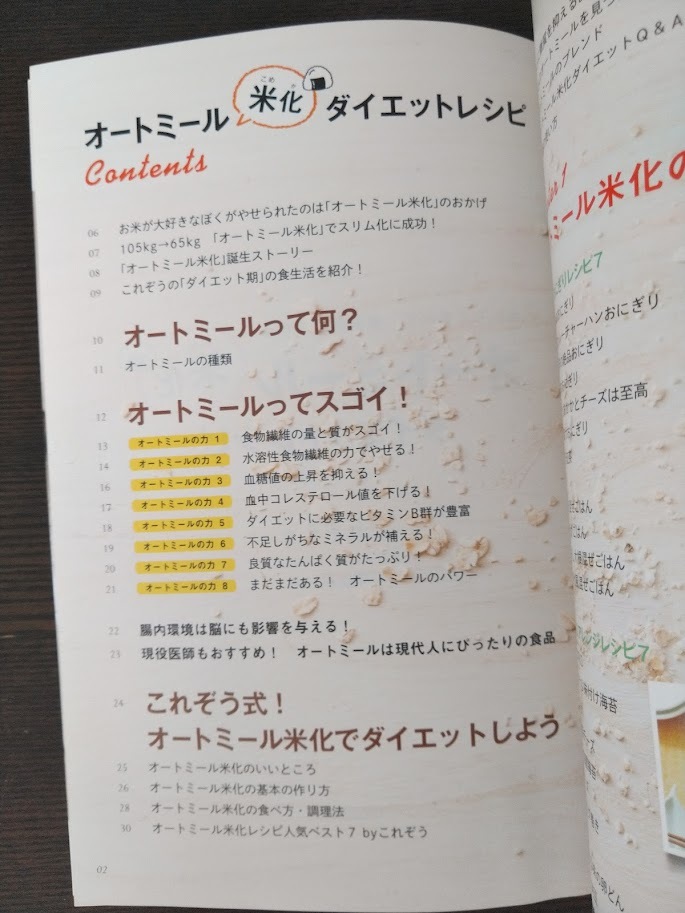 オートミール米化ダイエットレシピ
こめ か
Contents
06 お米が大好きなぼくがやせられたのは「オートミール米化」のおかげ
07 105kg→65kg 「オートミール米化」でスリム化に成功！
08 「オートミール米化」誕生ストーリー
09 これぞうの「ダイエット期」の食生活を紹介！
10 オートミールって何？
11 オートミールの種類
12 オートミールってスゴイ！
13 オートミールの力 1 食物繊維の量と質がスゴイ！
14 オートミールの力 2 水溶性食物繊維の力でやせる！
16 オートミールの力 3 血糖値の上昇を抑える！
17 オートミールの力 4 血中コレステロール値を下げる！
18 オートミールの力 5 ダイエットに必要なビタミンB群が豊富
19 オートミールの力 6 不足しがちなミネラルが補える！
20 オートミールの力 7 良質なたんぱく質がたっぷり！
21 オートミールの力 8 まだまだある！ オートミールのパワー
22 腸内環境は脳にも影響を与える！
23 現役医師もおすすめ！ オートミールは現代人にぴったりの食品
24 これぞう式！
オートミール米化でダイエットしよう
25 オートミール米化のいいところ
26 オートミール米化の基本の作り方
28 オートミール米化の食べ方・調理法
30 オートミール米化レシピ人気ベスト7 byこれぞう
02
トミールを見つ
ールのブレンド
ミール米化ダイエットQ&A
ミール米化の
ぎりレシピ7
にぎり
ーチャーハンおにぎり
おにぎり
かとチーズは至高
にぎり
ぜごはん
混ぜごはん
混ぜごはん
ンジレシピ7
味付け海苔
の卵どん